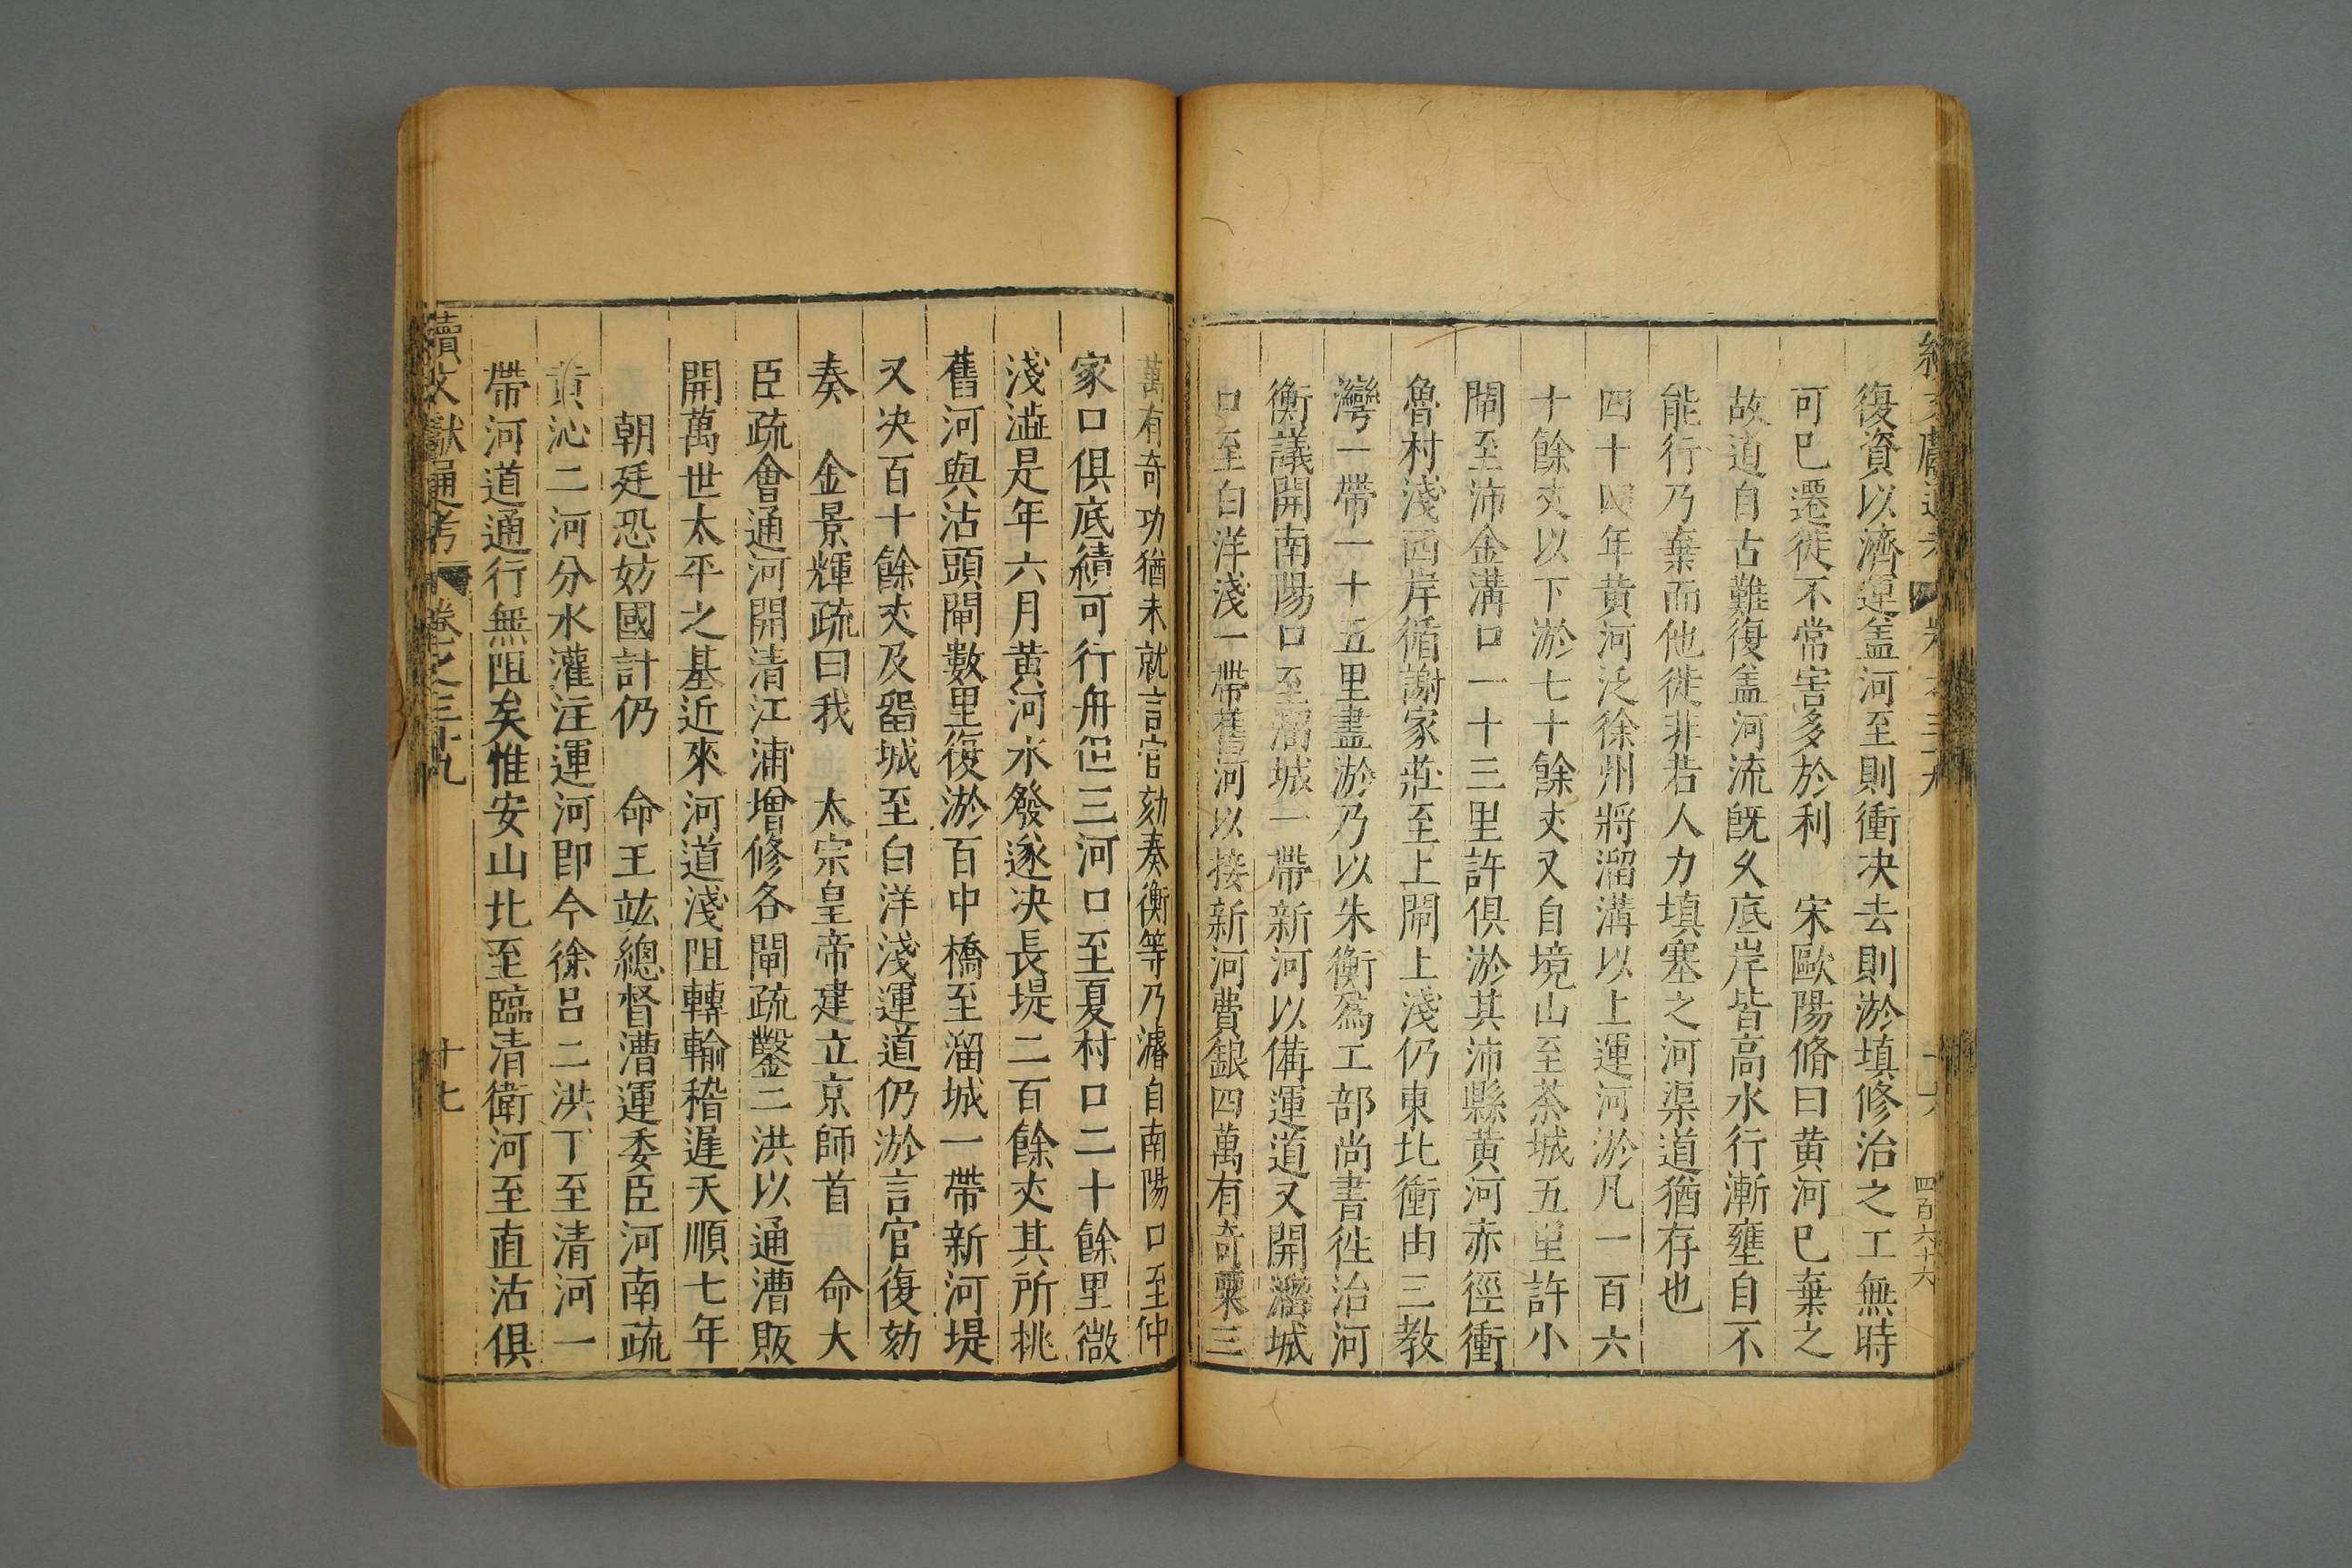 續文獻通考 卷之三十九 十六 四百六十六
復資以濟運盖河至則衝决去則淤填修治之工無時
可已遷徙不常害多於利 宋歐陽脩曰黄河已棄之
故道自古難復盖河流旣久底岸皆高水行漸壅自不
能行乃棄而他徙非若人力填塞之河渠道猶存也
四十四年黄河泛徐州將溜溝以上運河淤凡一百六
十餘丈以下淤七十餘丈又自境山至茶城五里許小
閘至沛金溝口一十三里許俱淤其沛縣黄河赤徑衝
魯村淺西岸循謝家莊至上閘上淺仍東北衝由三教
灣一帶一十五里盡淤乃以朱衡爲工部尚書徃治河
衡議開南陽口至溜城一帶新河以備運道又開溜城
口至白洋淺一帶舊河以接新河費銀四萬有奇粟三
萬有奇功猶未就言官劾奏衡等乃濬自南陽口至仲
家口俱底績可行舟但三河口至夏村口二十餘里微
淺澁是年六月黄河水發遂决長堤二百餘丈其所挑
舊河與沽頭閘數里復淤百中橋至溜城一帶新河堤
又决百十餘丈及留城至白洋淺運道仍淤言官復劾
奏 金景輝疏曰我 太宗皇帝建立京師首 命大
臣疏會通河開清江浦增修各閘疏鑿二洪以通漕販
開萬世太平之基近來河道淺阻轉輸稽遲天順七年
朝廷恐妨國計仍 命王竑總督漕運委臣河南疏
黄沁二河分水灌注運河即今徐呂二洪下至清河一
帶河道通行無阻矣惟安山北至臨清衛河至直沽俱
續文獻通考 卷之三十九 十七